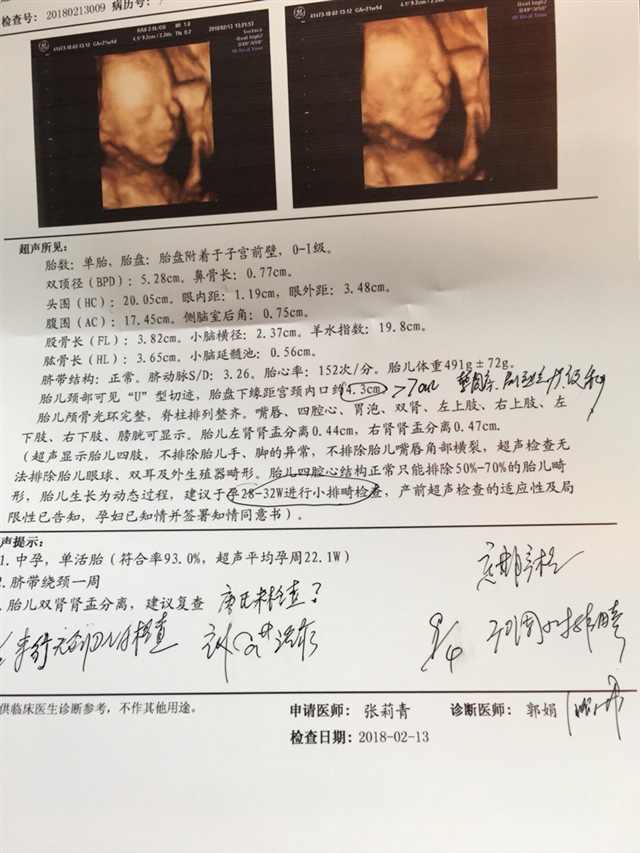 检查号: 20180213009 病历号:
GA=21w9d
4.1/9.2cm / 2.2Hz
MI 1.0
TIs 0.2
13/02/2018 13:21:53
Surface
GA=21w9d
4.1/9.2cm / 2.2Hz
超声所见:
胎数: 单胎, 胎盘: 胎盘附着于子宫前壁, 0-I级。
双顶径 (BPD): 5.28cm。鼻骨长: 0.77cm。
头围 (HC): 20.05cm。眼内距: 1.19cm, 眼外距: 3.48cm。
腹围 (AC): 17.45cm。侧脑室后角: 0.75cm。
股骨长 (FL): 3.82cm。小脑横径: 2.37cm。羊水指数: 19.8cm。
肱骨长 (HL): 3.65cm。小脑延髓池: 0.56cm。
脐带结构: 正常。脐动脉S/D: 3.26。胎心率: 152次/分。胎儿体重491g±72g。
胎儿颈部可见"U"型切迹, 胎盘下缘距宫颈内口约4.3cm >7cm
胎儿颅骨光环完整, 脊柱排列整齐。嘴唇、四腔心、胃泡、双肾、左上肢、右上肢、左
下肢、右下肢、膀胱可显示。胎儿左肾肾盂分离0.44cm, 右肾肾盂分离0.47cm.
(超声显示胎儿四肢, 不排除胎儿手、脚的异常, 不排除胎儿嘴唇角部横裂, 超声检查无
法排除胎儿眼球、双耳及外生殖器畸形。胎儿四腔心结构正常只能排除50%-70%的胎儿畸
形, 胎儿生长为动态过程, 建议于孕28-32W进行小排畸检查, 产前超声检查的适应性及局
限性已告知, 孕妇已知情并签署知情同意书)。
声提示:
1. 中孕, 单活胎 (符合率93.0%, 超声平均孕周22.1W)
2. 脐带绕颈一周
胎儿双肾肾盂分离, 建议复查 唐氏未检查?
未行无创DNA检查
9/4
供临床医生诊断参考, 不作其他用途。
申请医师: 张莉青 诊断医师: 郭娟
检查日期: 2018-02-13